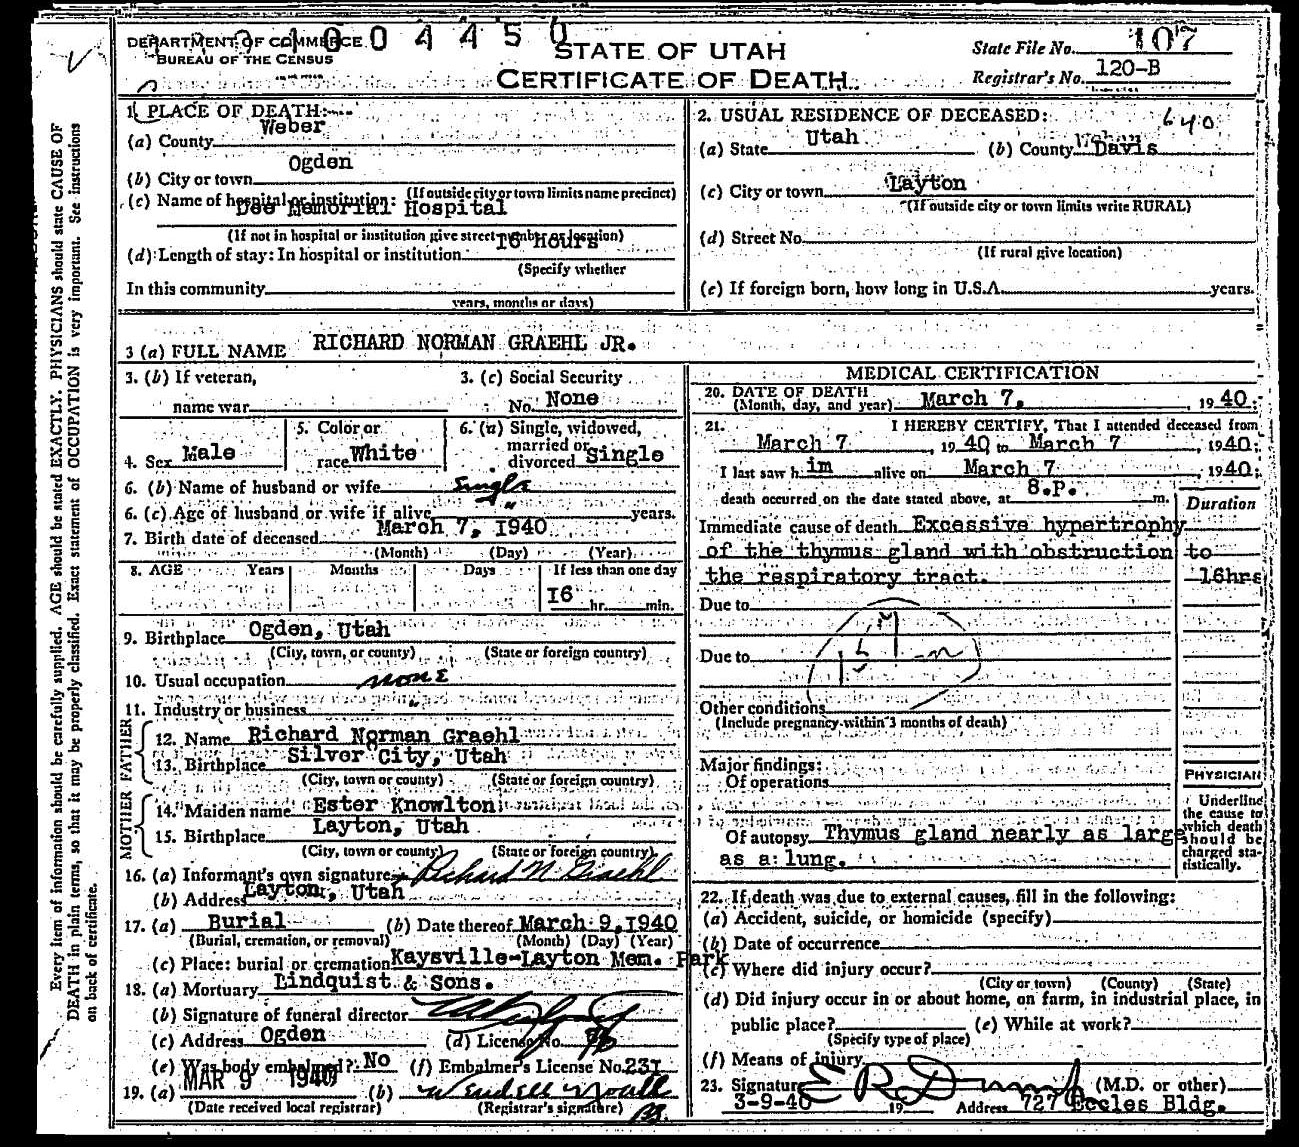 1004450
DEPARTMENT OF COMMERCE
BUREAU OF THE CENSUS
STATE OF UTAH
CERTIFICATE OF DEATH
State File No. 107
Registrar's No. 120-B
1. PLACE OF DEATH:
(a) County Weber
(b) City or town Ogden
(If outside city or town limits name precinct)
(c) Name of hospital or institution: Dee Memorial Hospital
(If not in hospital or institution give street number or location)
(d) Length of stay: In hospital or institution 16 Hours
(Specify whether
In this community
years, months or days)
2. USUAL RESIDENCE OF DECEASED: 640
(a) State Utah (b) County Davis
(c) City or town Layton
(If outside city or town limits write RURAL)
(d) Street No.
(If rural give location)
(e) If foreign born, how long in U.S.A. years.
3 (a) FULL NAME RICHARD NORMAN GRAEHL JR.
3. (b) If veteran,
name war
3. (c) Social Security
No. None
4. Sex Male
5. Color or
race White
6. (a) Single, widowed,
married or
divorced Single
6. (b) Name of husband or wife Single
6. (c) Age of husband or wife if alive " years.
7. Birth date of deceased March 7, 1940
(Month) (Day) (Year)
8. AGE Years Months Days If less than one day
16 hr. min.
9. Birthplace Ogden, Utah
(City, town, or county) (State or foreign country)
10. Usual occupation none
11. Industry or business "
FATHER
12. Name Richard Norman Graehl
13. Birthplace Silver City, Utah
(City, town or county) (State or foreign country)
MOTHER
14. Maiden name Ester Knowlton
15. Birthplace Layton, Utah
(City, town or county) (State or foreign country)
16. (a) Informant's own signature Richard N. Graehl
(b) Address Layton, Utah
17. (a) Burial (b) Date thereof March 9, 1940
(Burial, cremation, or removal) (Month) (Day) (Year)
(c) Place: burial or cremation Kaysville-Layton Mem. Park
18. (a) Mortuary Lindquist & Sons.
(b) Signature of funeral director
(c) Address Ogden (d) License No.
(e) Was body embalmed? No (f) Embalmer's License No. 231
19. (a) MAR 9 1940 (b)
(Date received local registrar) (Registrar's signature)
MEDICAL CERTIFICATION
20. DATE OF DEATH
(Month, day, and year) March 7, 1940.
21. I HEREBY CERTIFY, That I attended deceased from
March 7, 1940 to March 7, 1940;
I last saw him alive on March 7 1940;
death occurred on the date stated above, at 8.P. m.
Duration
Immediate cause of death Excessive hypertrophy
of the thymus gland with obstruction to
the respiratory tract. 16hrs
Due to
Due to
Other conditions
(Include pregnancy within 3 months of death)
Major findings:
Of operations
Of autopsy Thymus gland nearly as large
as a lung.
PHYSICIAN
Underline
the cause to
which death
should be
charged sta-
tistically.
22. If death was due to external causes, fill in the following:
(a) Accident, suicide, or homicide (specify)
(b) Date of occurrence
(c) Where did injury occur?
(City or town) (County) (State)
(d) Did injury occur in or about home, on farm, in industrial place, in
public place? (e) While at work?
(Specify type of place)
(f) Means of injury
23. Signature (M.D. or other)
3-9-40 19 Address 727 Eccles Bldg.
Every item of information should be carefully supplied. AGE should be stated EXACTLY. PHYSICIANS should state CAUSE OF
DEATH in plain terms, so that it may be properly classified. Exact statement of OCCUPATION is very important. See instructions
on back of certificate.